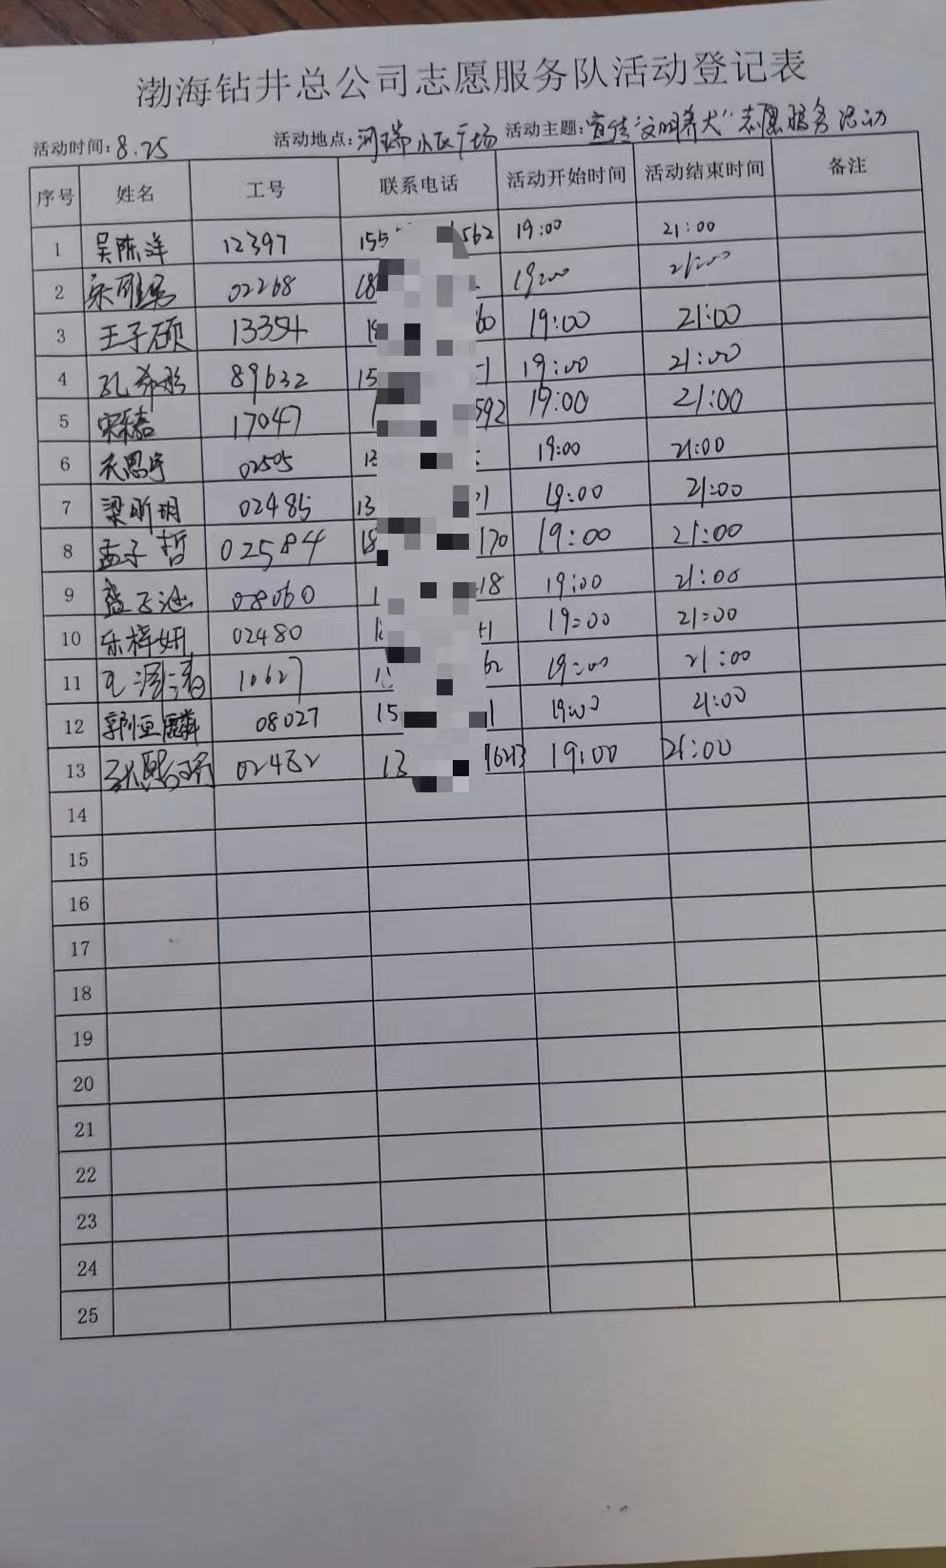 渤海钻井总公司志愿服务队活动登记表
活动时间：8.25 活动地点：河瑞小区广场 活动主题：宣传“文明养犬”志愿服务活动
序号 姓名 工号 联系电话 活动开始时间 活动结束时间 备注
1 吴陈洋 12397 155 562 19:00 21:00
2 02268 18 19:00 21:00
3 王子硕 13354 1 60 19:00 21:00
4 孔 89632 15 1 19:00 21:00
5 17047 1 592 19:00 21:00
6 02505 13 19:00 21:00
7 梁昕玥 02485 13 1 19:00 21:00
8 孟子哲 02584 18 170 19:00 21:00
9 08060 1 18 19:00 21:00
10 乐梓妍 02480 1 1 19:00 21:00
11 10627 1 62 19:00 21:00
12 郭恒麟 08027 15 1 19:00 21:00
13 02482 13 19:00 21:00
14
15
16
17
18
19
20
21
22
23
24
25